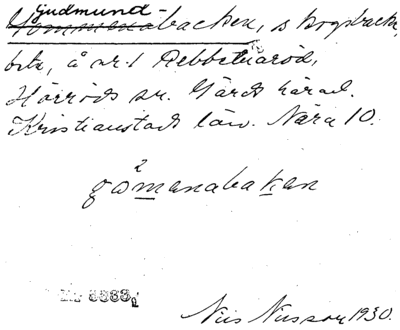 Gudmund-
Gommenabacken, skogsbacke,
bete, å nr. 1 Debbetaröd,
Hörröds sn. Gärds härad.
Kristianstads län. Nära 10.
2
gåmanabakan
Nils Nilsson 1930.